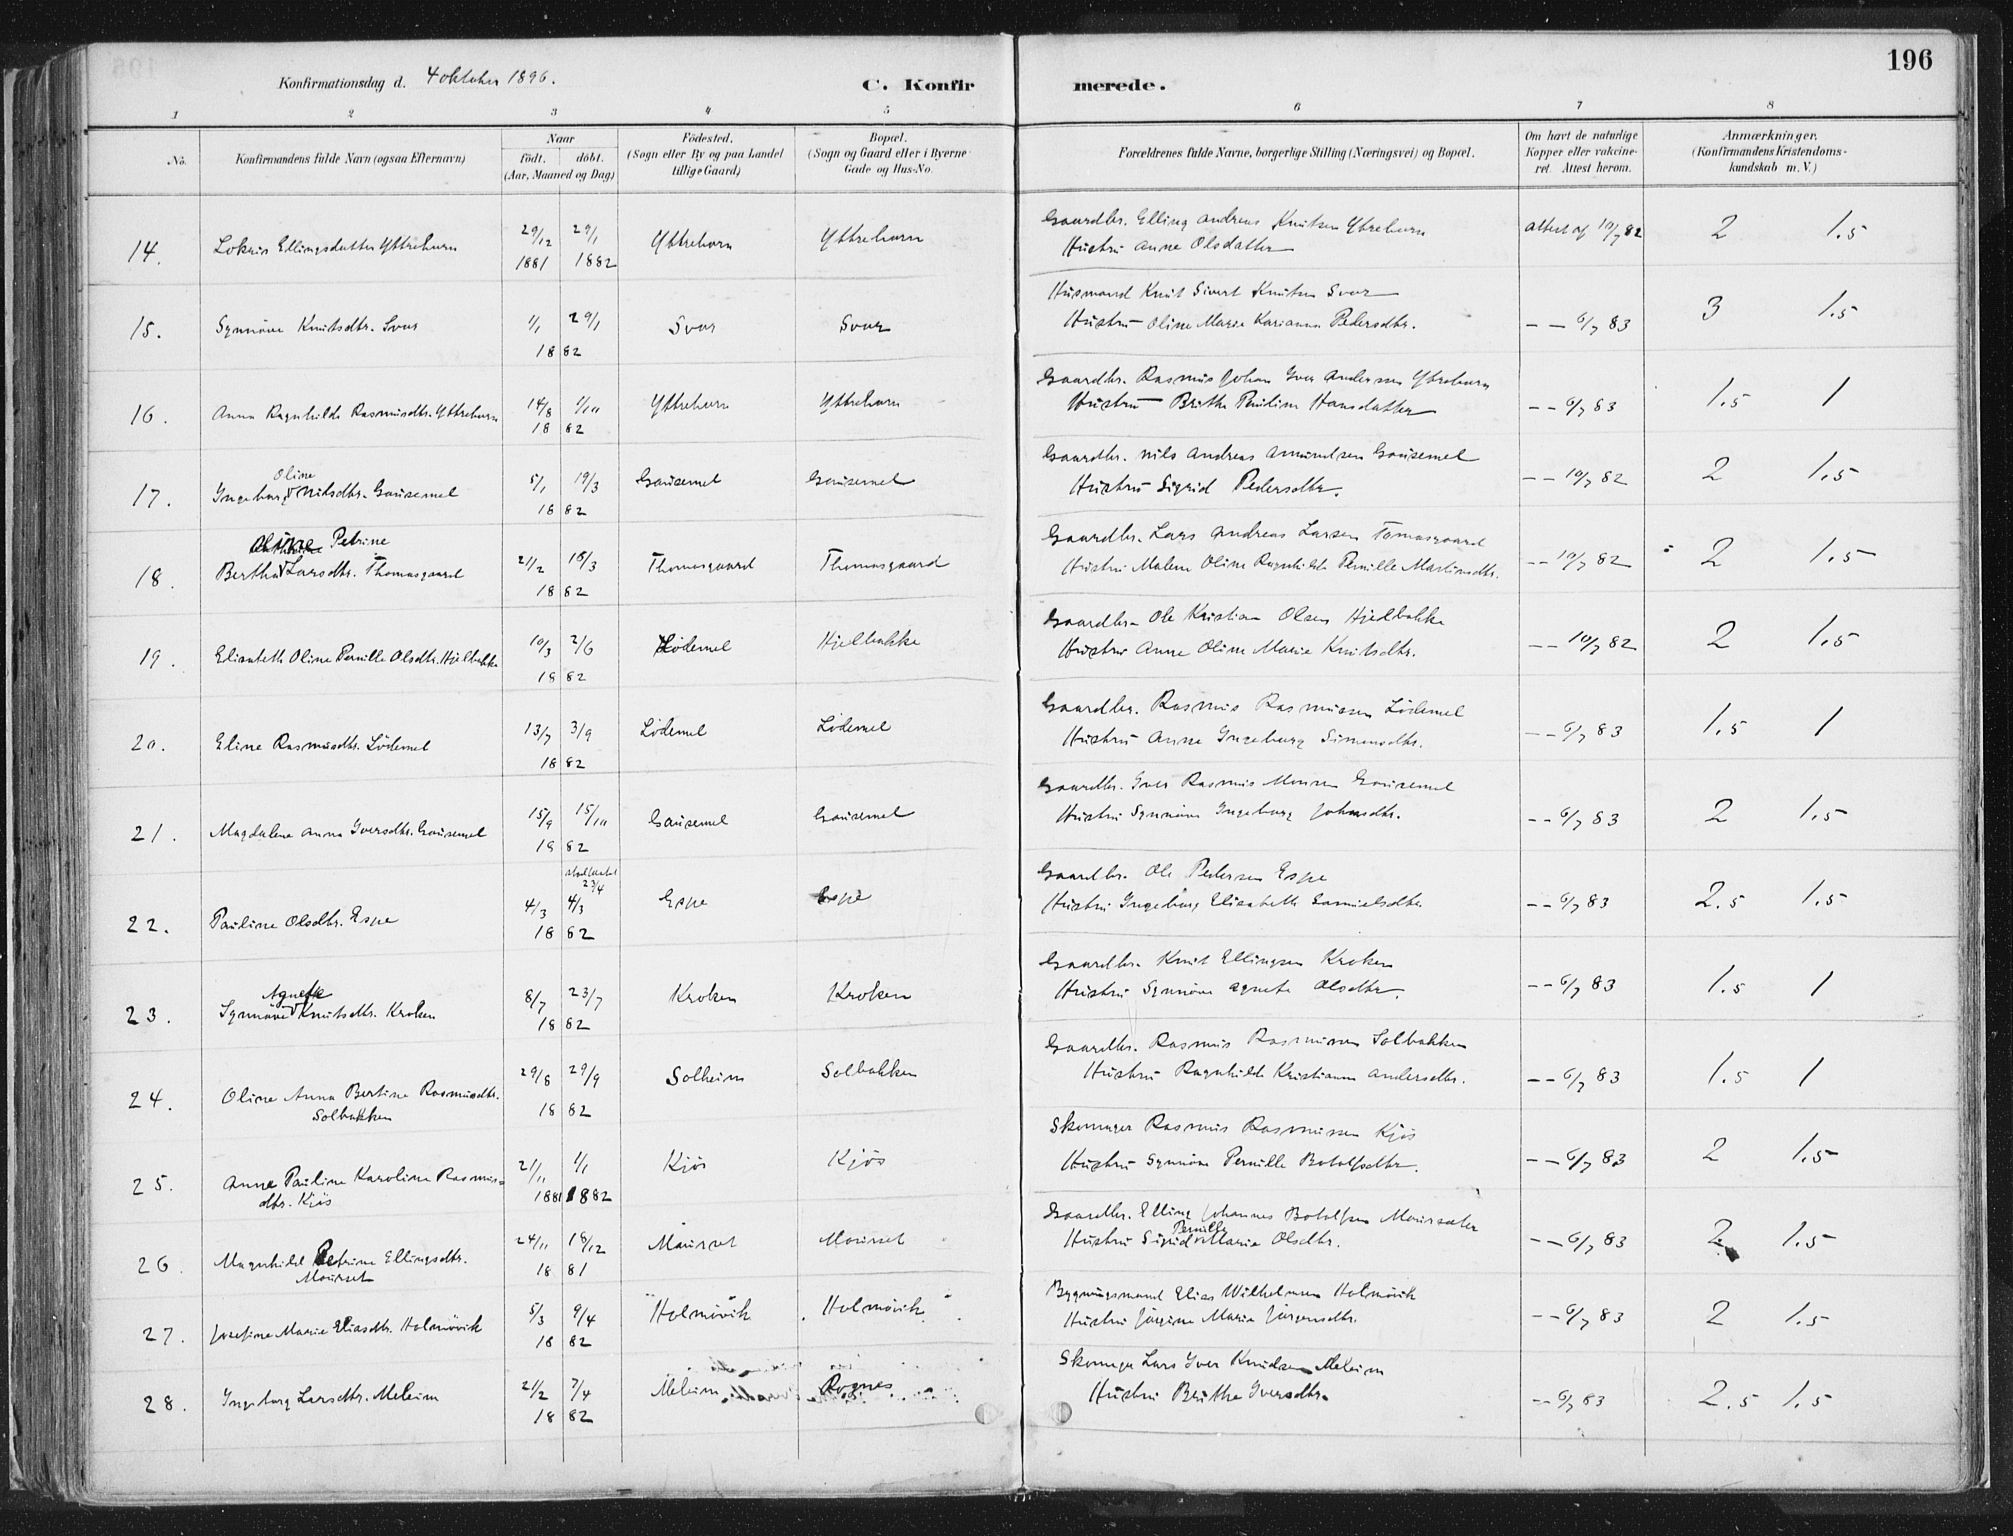 196
Konfirmationsdag d. 4 oktober 1896.
C. Konfirmerede.
1 2 3 4 5 6 7 8
No.
Konfirmandens fulde Navn (ogsaa Efternavn)
Naar
födt. döbt.
(Aar, Maaned og Dag)
Födested.
(Sogn eller By og paa Landet
tillige Gaard)
Bopæl.
(Sogn og Gaard eller i Byerne
Gade og Hus-No.
Forældrenes fulde Navne, borgerlige Stilling (Næringsvei) og Bopæl.
Om havt de naturlige
Kopper eller vakcine-
ret. Attest herom.
Anmærkninger.
(Konfirmandens Kristendoms-
kundskab m. V.)
14. Ellingsdatter Yttrehorn 29/12 1881 29/1 1882 Yttrehorn Yttrehorn
Gaardbr. Elling Andreas Knutsen Ytrehorn
Hustru Anne Olsdatter
attest af 10/7 82 2 1.5
15. Synnöve Knutsdtr. Svor 1/1 29/1 1882 Svor Svor
Husmand Knut Sivert Knutsen Svor
Hustru Oline Marie Karianna Pedersdtr.
– – 6/7 83 3 1.5
16. Anna Ragnhilde Rasmusdtr. Yttrehorn 14/8 1/10 1882 Yttrehorn Yttrehorn
Gaardbr. Rasmus Johan Iver Andersen Ytrehorn
Hustru Brithe Pauline Hansdatter
– – 6/7 83 1.5 1
17. Ingeborg Oline Nilsdtr. Gausemel 5/1 19/3 1882 Gausemel Gausemel
Gaardbr. Nils Andreas Amundsen Gausemel
Hustru Sigrid Pedersdtr.
– – 10/7 82 2 1.5
18. Bertha Oline Petrine Larsdtr. Thomasgaard 21/2 18/3 1882 Thomasgaard Thomasgaard
Gaardbr. Lars Andreas Larsen Tomasgaard
Hustru Malene Oline Ragnhilde Pernille Martinsdtr.
– – 10/7 82 2 1.5
19. Elisabeth Oline Pernille Olsdtr. Hjelbakke 10/3 2/6 1882 Lödemel Hjelbakke
Gaardbr. Ole Kristian Olsen Hjelbakke
Hustru Anne Oline Marie Knutsdtr.
– – 10/7 82 2 1.5
20. Eline Rasmusdtr. Lödemel 13/7 3/9 1882 Lödemel Lödemel
Gaardbr. Rasmus Rasmussen Lödemel
Hustru Anne Ingeborg Simonsdtr.
– – 6/7 83 1.5 1
21. Magdalene Anna Iversdtr. Gausemel 15/9 15/10 1882 Gausemel Gausemel
Gaardbr. Iver Rasmus Monsen Gausemel
Hustru Synnöve Ingeborg Johnsdtr.
– – 6/7 83 2 1.5
22. Pauline Olsdtr. Espe 4/3 4/3 23/4 1882 Espe Espe
Gaardbr. Ole Pedersen Espe
Hustru Ingeborg Elisabeth Samuelsdtr.
– – 6/7 83 2.5 1.5
23. Synnöve Agnette Knutsdtr. Kroken 8/7 23/7 1882 Kroken Kroken
Gaardbr. Knut Ellingsen Kroken
Hustru Synnöve Agnete Olsdtr.
– – 6/7 83 1.5 1
24. Oline Anna Bertine Rasmusdtr. 29/8 29/9 1882 Solheim Solbakken
Solbakken
Gaardbr. Rasmus Rasmussen Solbakken
Hustru Ragnhilde Kristianna Andersdtr.
– – 6/7 83 1.5 1
25. Anne Pauline Karoline Rasmus- 21/11 1881 1/1 1882 Kjös Kjös
dtr. Kjös
Skomager Rasmus Rasmussen Kjös
Hustru Synnöve Pernille Botolfsdtr.
– – 6/7 83 2 1.5
26. Magnhild Petrine Ellingsdtr. 24/11 18/12 1881 Maurset Maurset
Maurset
Gaardbr. Elling Johannes Botolfsen Maursætre
Hustru Sigrid Pernille Marie Olsdtr.
– – 6/7 83 2 1.5
27. Josefine Marie Eliasdtr. Holmövik 5/3 9/4 1882 Holmövik Holmövik
Bygningsmand Elias Wilhelmsen Holmövik
Hustru Jörgine Marie Jörgensdtr.
– – 6/7 83 2 1.5
28. Ingeborg Larsdtr. Meleim 21/2 7/4 1882 Meleim Rognes
Skomager Lars Iver Knudsen Meleim
Hustru Brithe Iversdtr.
– – 6/7 83 2.5 1.5